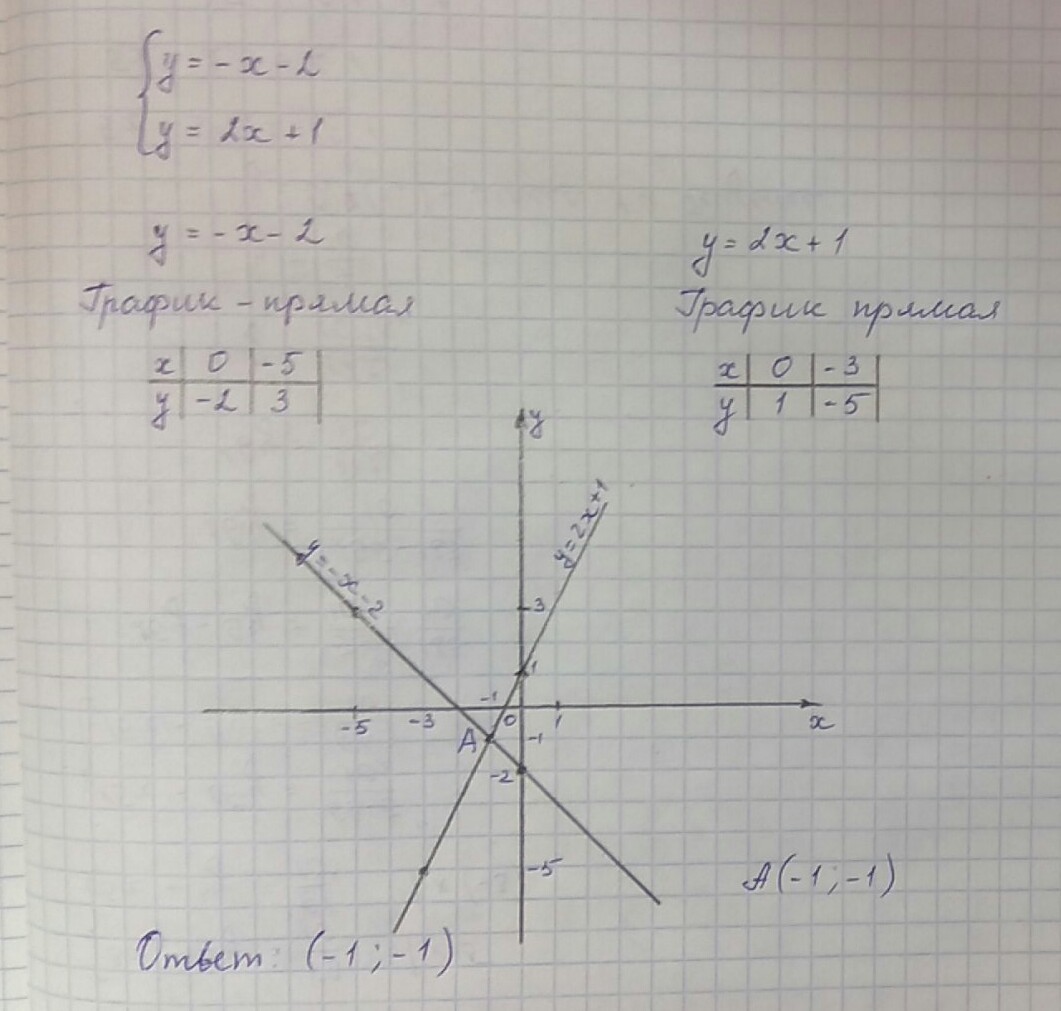 y = -x - 2
y = 2x + 1
y = -x - 2
График - прямая
x 0 -5
y -2 3
y = 2x + 1
График прямая
x 0 -3
y 1 -5
y
y=2x+1
y=-x-2
3
1
-1
-5 -3 0 1 x
A -1
-2
-5
A(-1;-1)
Ответ: (-1;-1)